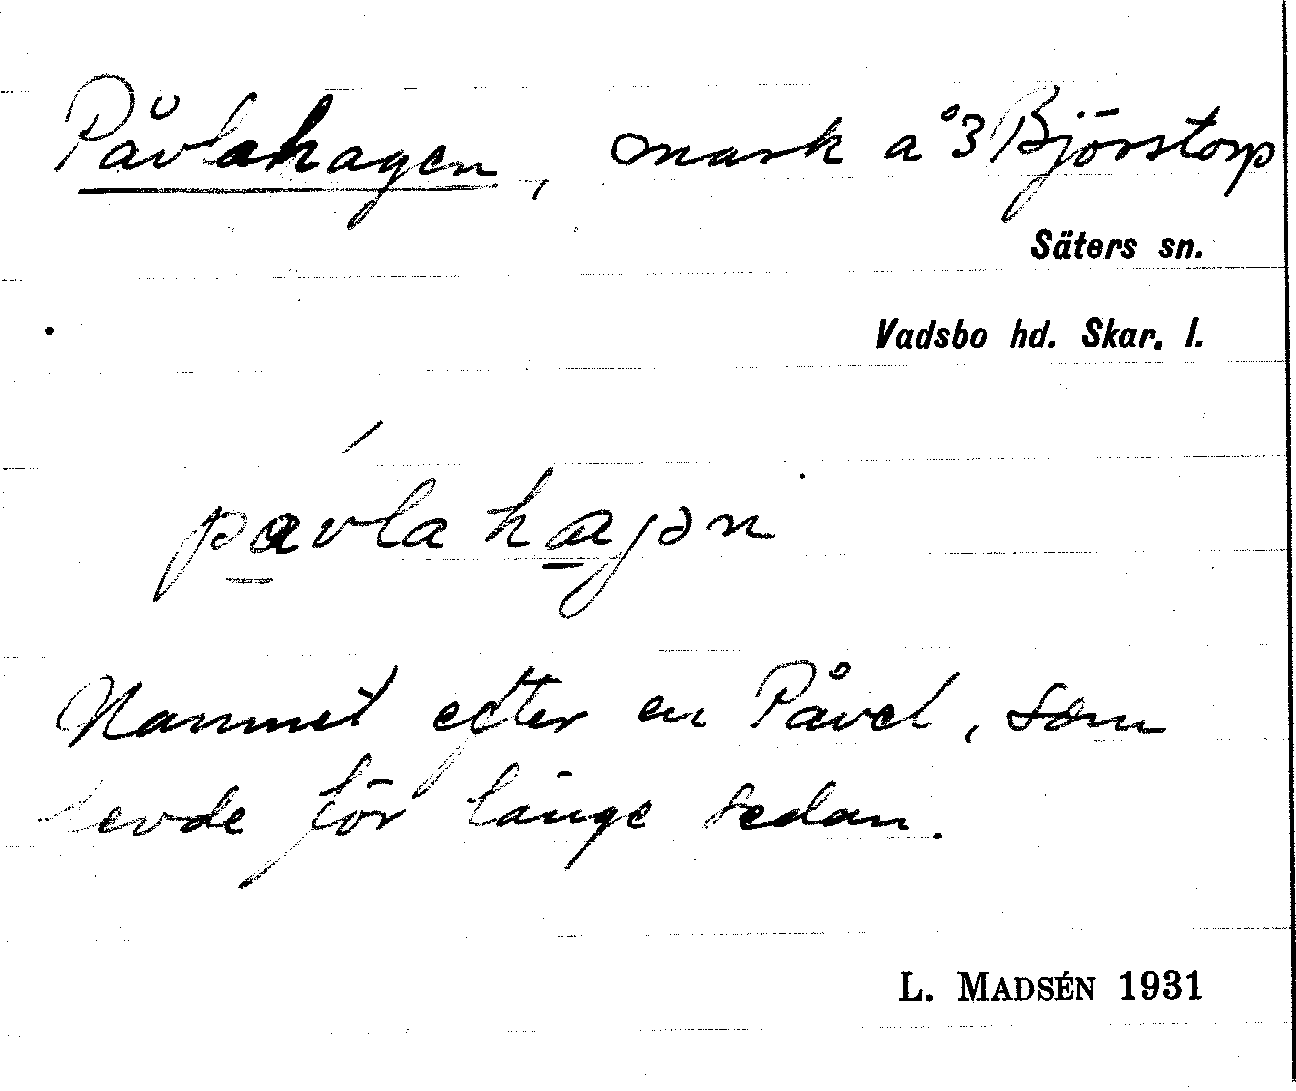 Påvlahagen, mark å 3 Björstorp
Säters sn.
Vadsbo hd. Skar. l.
pavla hagən
Namnet efter en Påvel, som
levde för länge sedan.
L. MADSÉN 1931